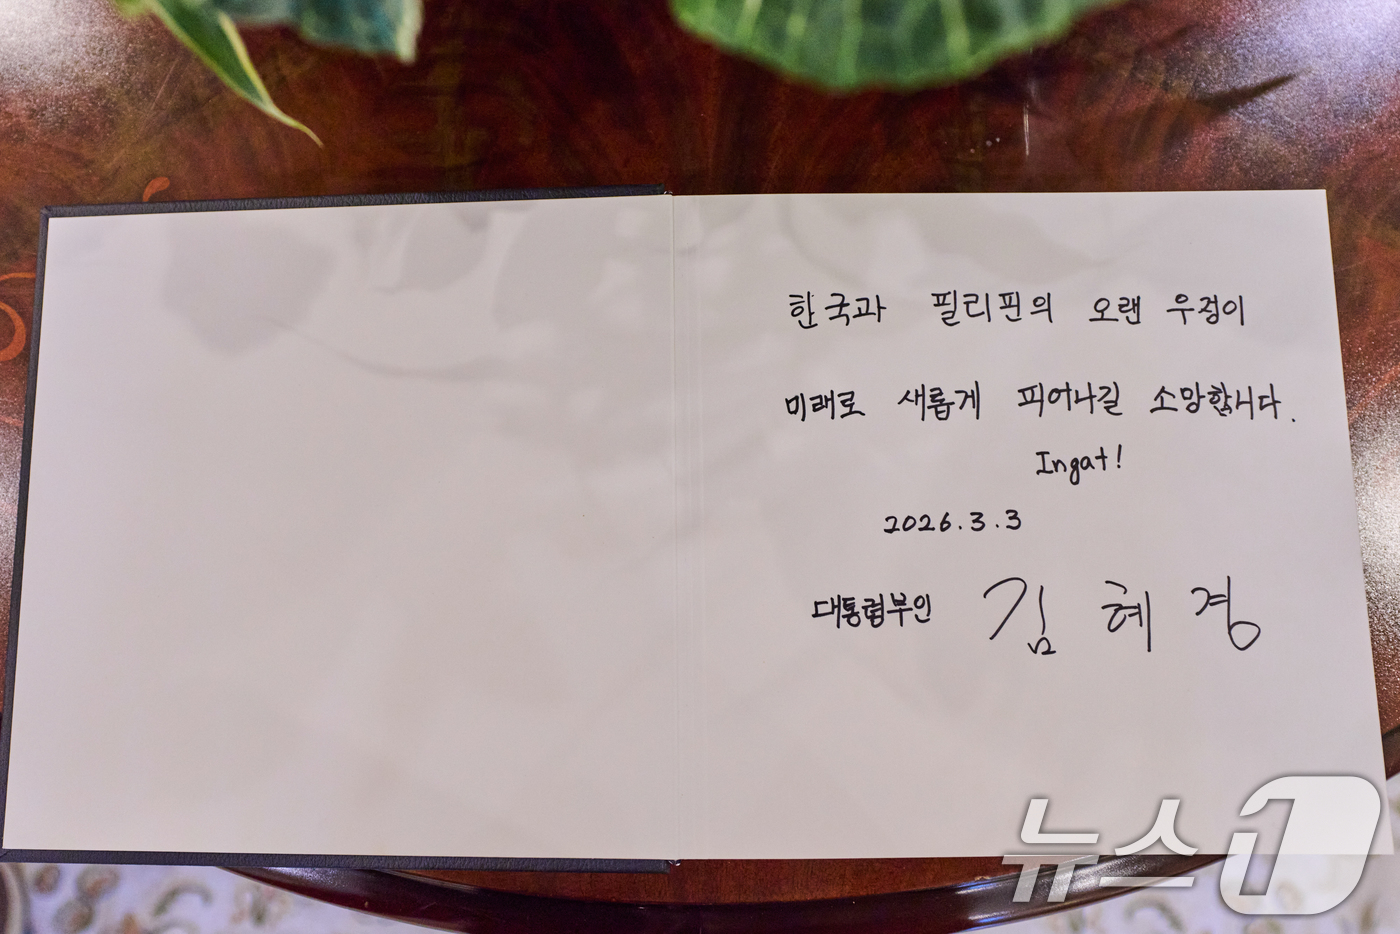 한국과 필리핀의 오랜 우정이
미래로 새롭게 피어나길 소망합니다.
Ingat!
2026.3.3
대통령부인 김혜경
뉴스1